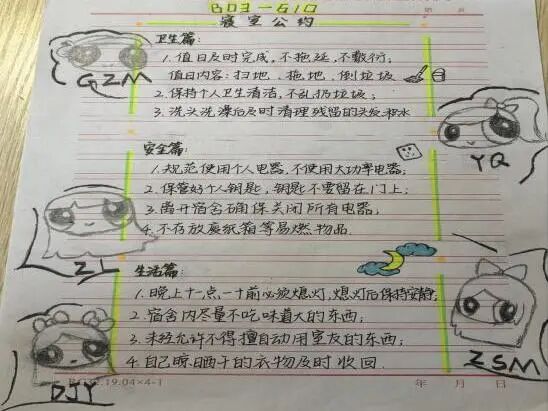 B03-610
寝室公约
卫生篇：
1. 值日及时完成，不拖延，不敷衍；
值日内容：扫地、拖地、倒垃圾
2. 保持个人卫生清洁，不乱扔垃圾；
3. 洗头洗澡后及时清理残留的头发和水
安全篇：
1. 规范使用个人电器，不使用大功率电器；
2. 保管好个人钥匙，钥匙不要留在门上；
3. 离开宿舍确保关闭所有电器；
4. 不存放废纸箱等易燃物品.
生活篇：
1. 晚上十一点一十前必须熄灯，熄灯后保持安静；
2. 宿舍内尽量不吃味道大的东西；
3. 未经允许不得擅自动用室友的东西；
4. 自己晾晒干的衣物及时收回.
GZM
YQ
ZL
ZSM
DJY
19.04×4-1
年 月 日